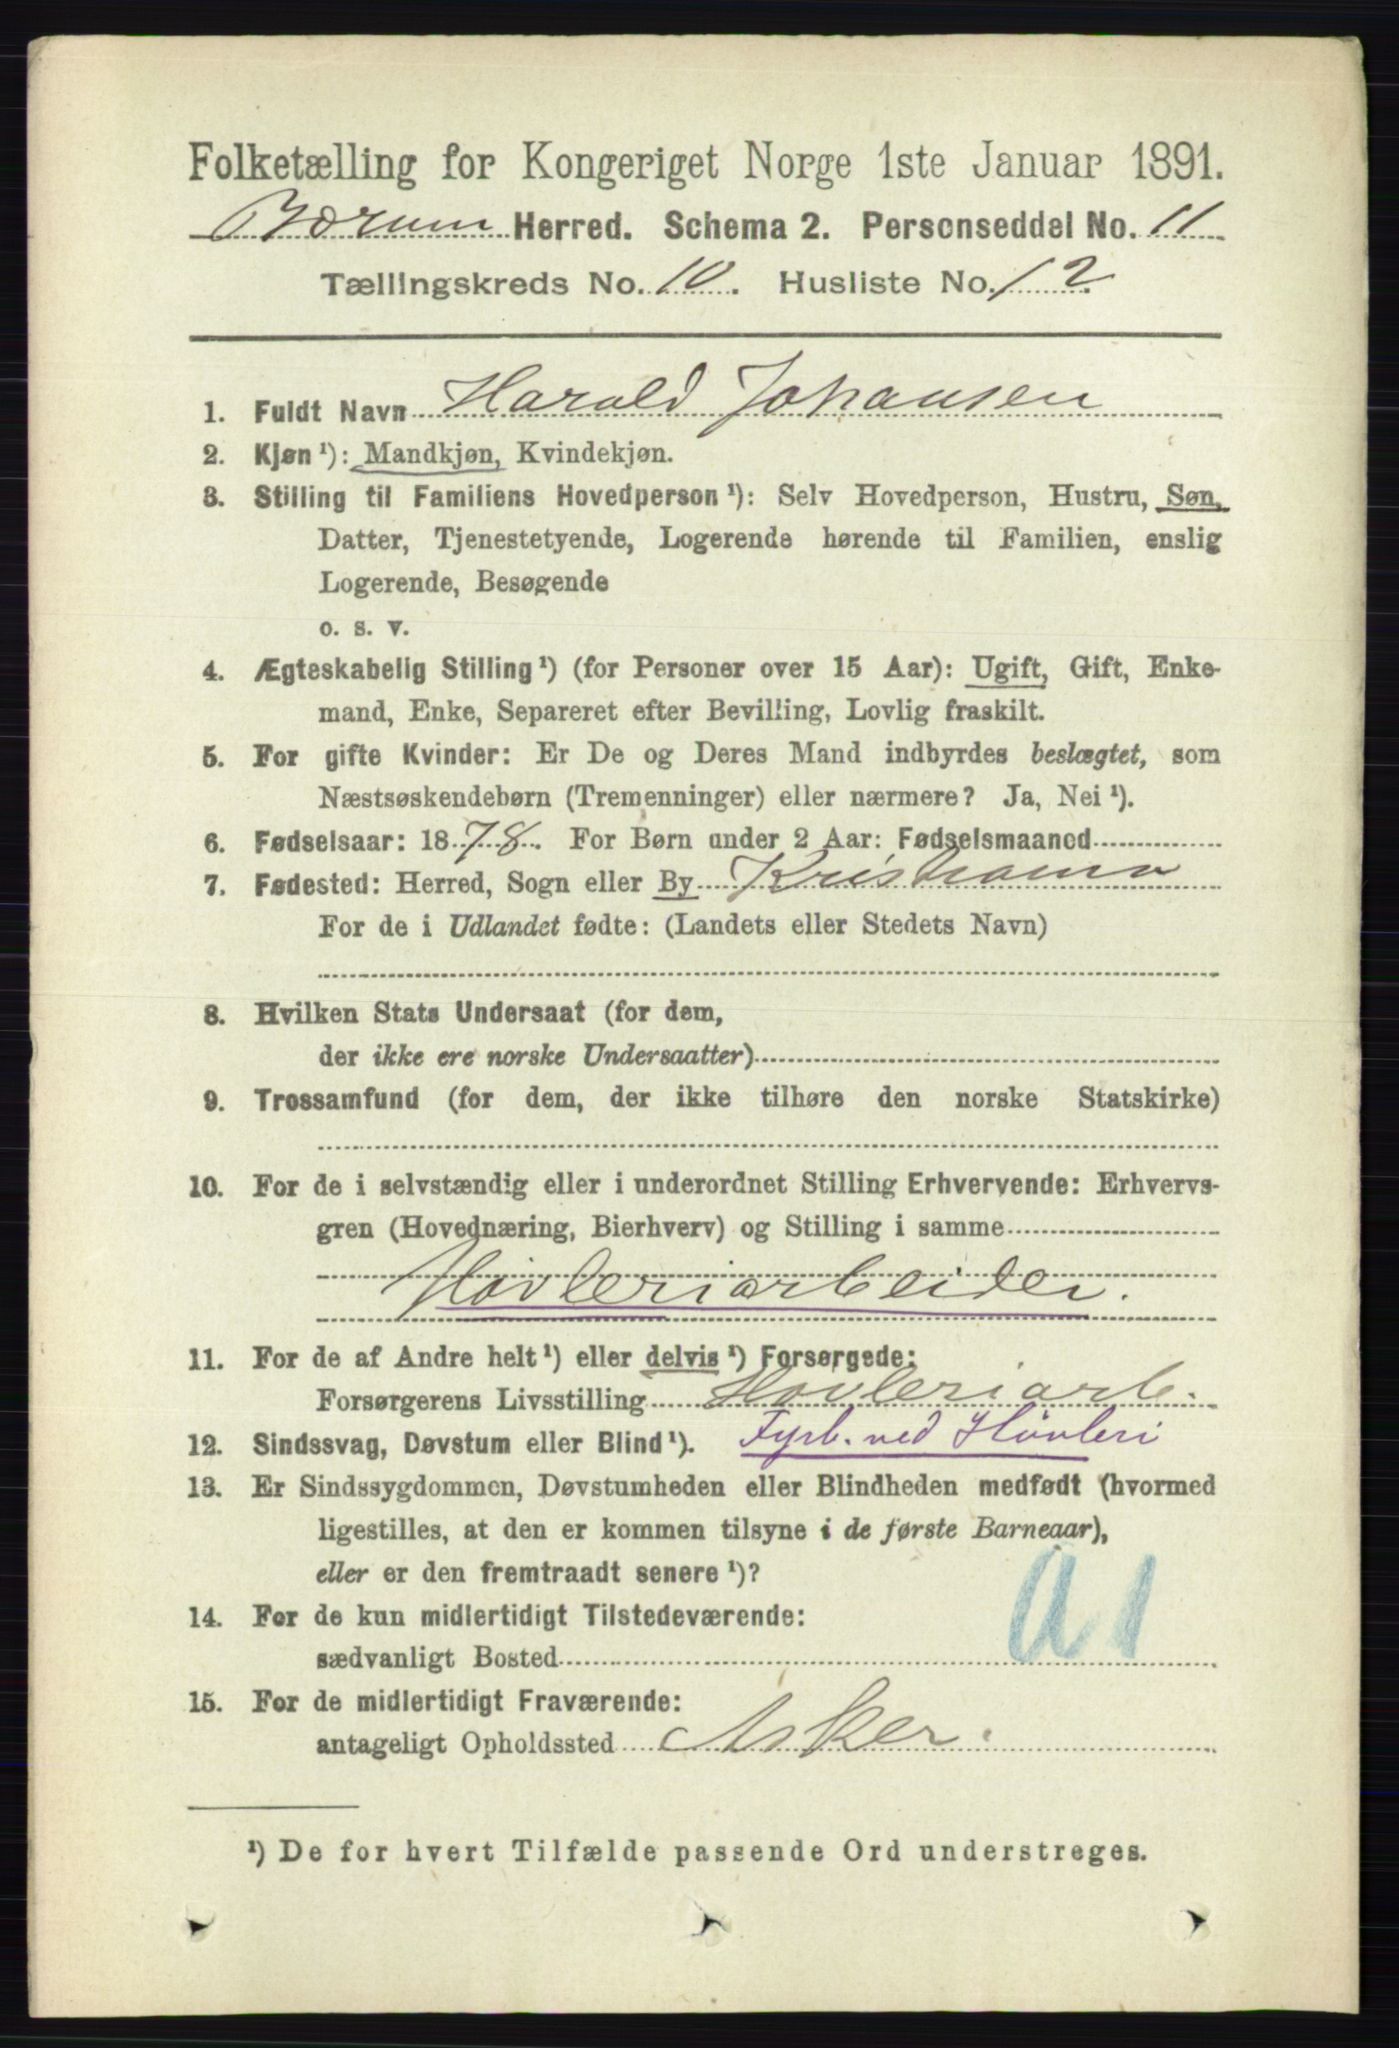 Folketælling for Kongeriget Norge 1ste Januar 1891.
Bærum Herred. Schema 2. Personseddel No. 11
Tællingskreds No. 10. Husliste No. 12
1. Fuldt Navn Harald Johansen
2. Kjøn¹): Mandkjøn, Kvindekjøn.
3. Stilling til Familiens Hovedperson¹): Selv Hovedperson, Hustru, Søn,
Datter, Tjenestetyende, Logerende hørende til Familien, enslig
Logerende, Besøgende
o. s. v.
4. Ægteskabelig Stilling¹) (for Personer over 15 Aar): Ugift, Gift, Enke-
mand, Enke, Separeret efter Bevilling, Lovlig fraskilt.
5. For gifte Kvinder: Er De og Deres Mand indbyrdes beslægtet, som
Næstsøskendebørn (Tremenninger) eller nærmere? Ja, Nei¹).
6. Fødselsaar: 1878. For Børn under 2 Aar: Fødselsmaaned
7. Fødested: Herred, Sogn eller By Kristiania
For de i Udlandet fødte: (Landets eller Stedets Navn)
8. Hvilken Stats Undersaat (for dem,
der ikke ere norske Undersaatter)
9. Trossamfund (for dem, der ikke tilhøre den norske Statskirke)
10. For de i selvstændig eller i underordnet Stilling Erhvervende: Erhvervs-
gren (Hovednæring, Bierhverv) og Stilling i samme
Høvleriarbeider.
11. For de af Andre helt¹) eller delvis¹) Forsørgede:
Forsørgerens Livsstilling Høvleriarb.
12. Sindssvag, Døvstum eller Blind¹). Fyrb. ved Høvleri
13. Er Sindssygdommen, Døvstumheden eller Blindheden medfødt (hvormed
ligestilles, at den er kommen tilsyne i de første Barneaar),
eller er den fremtraadt senere¹)?
a1
14. For de kun midlertidigt Tilstedeværende:
sædvanligt Bosted
15. For de midlertidigt Fraværende:
antageligt Opholdssted Asker.
¹) De for hvert Tilfælde passende Ord understreges.